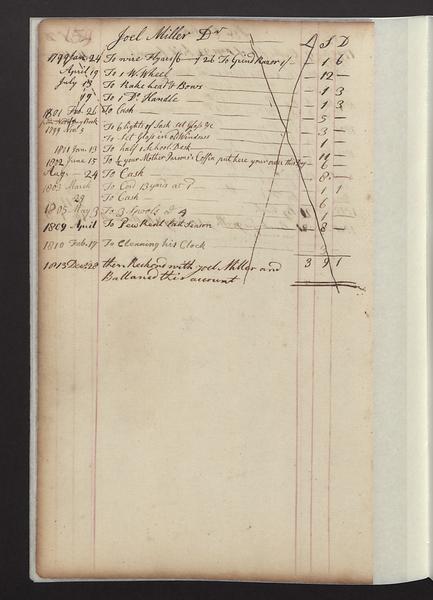 Joel Miller Dr
L S D
1799 Jan 24 To wire 26 To Grind Razor 1 6
April 19 To 1 W Wheel 12
July 13 To Rake head & Bows 1 3
19 To 1 P. Handle 1 3
1801 Feb. 26 To Cash 5
1799 Nov. 5 To 6 lights of Sash at 3
To Set Glass in old Windows 1
1811 Jan. 13 To half a School Desk
1802 June 15 To your Mother Coffin put here your
Aug. 24 To Cash 8
1803 March To 1 1
29 To Cash 6
1805 May 3 To 3 Spools 1
1809 April To Pew Rent Last Season 8
1810 Feb. 17 To Cleaning his Clock
1813 Decr 28 then Reckond with Joel Miller and 3 9 1
Ballanced this account